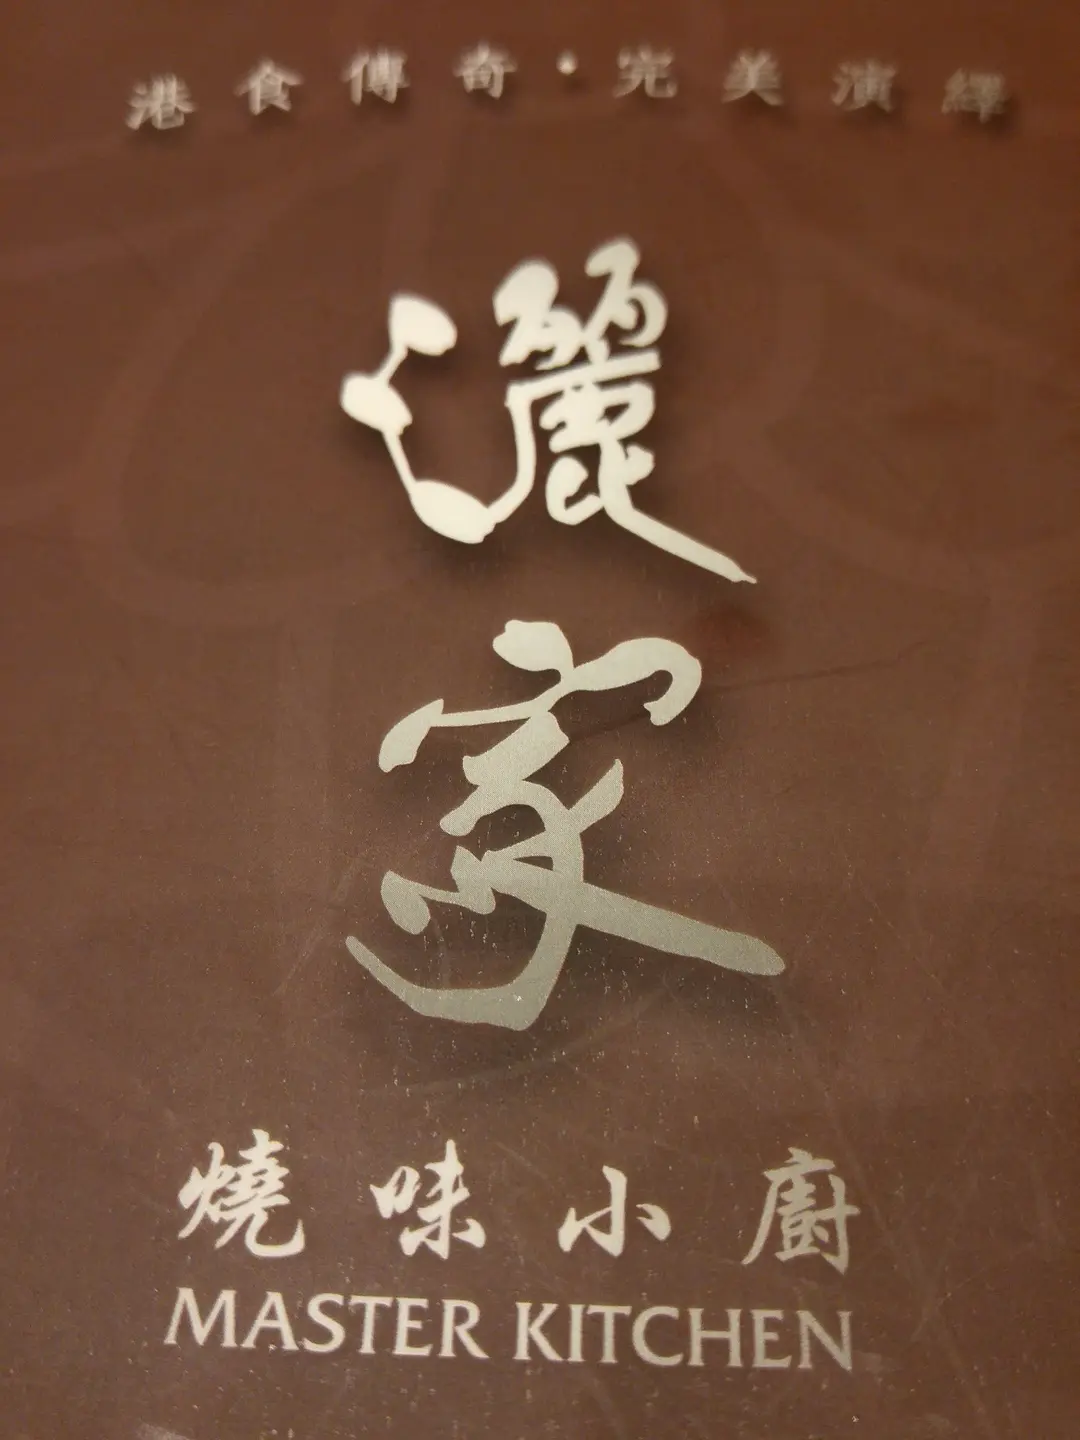 港食傳奇·完美演繹
灑家
燒味小廚
MASTER KITCHEN